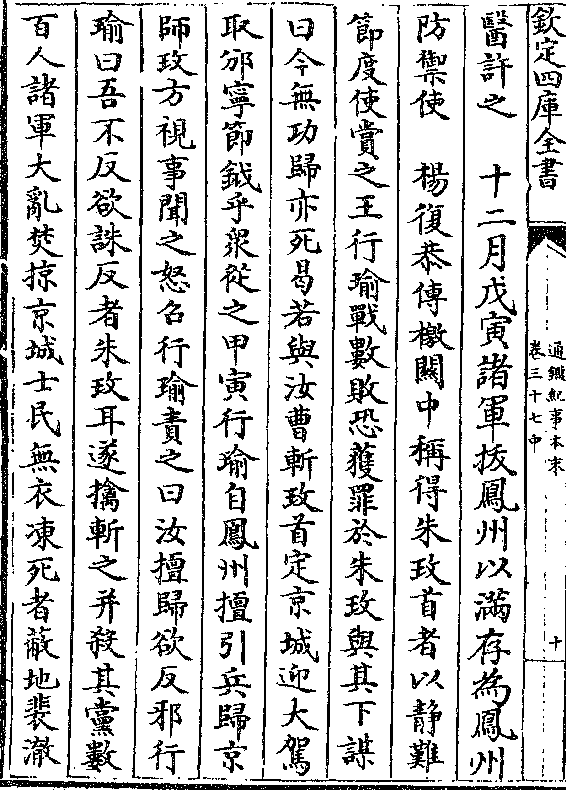 欽定四庫全書
通鑑紀事本末
卷三十七中
十
醫許之　十二月戊寅諸軍拔鳳州以滿存為鳳州
防禦使　楊復恭傳檄關中稱得朱玫首者以靜難
節度使賞之王行瑜戰數敗恐獲罪於朱玫與其下謀
曰今無功歸亦死曷若與汝曹斬玫首定京城迎大駕
取邠寧節鉞乎眾從之甲寅行瑜自鳳州擅引兵歸京
師玫方視事聞之怒召行瑜責之曰汝擅歸欲反邪行
瑜曰吾不反欲誅反者朱玫耳遂擒斬之并殺其黨數
百人諸軍大亂焚掠京城士民無衣凍死者蔽地裴澈